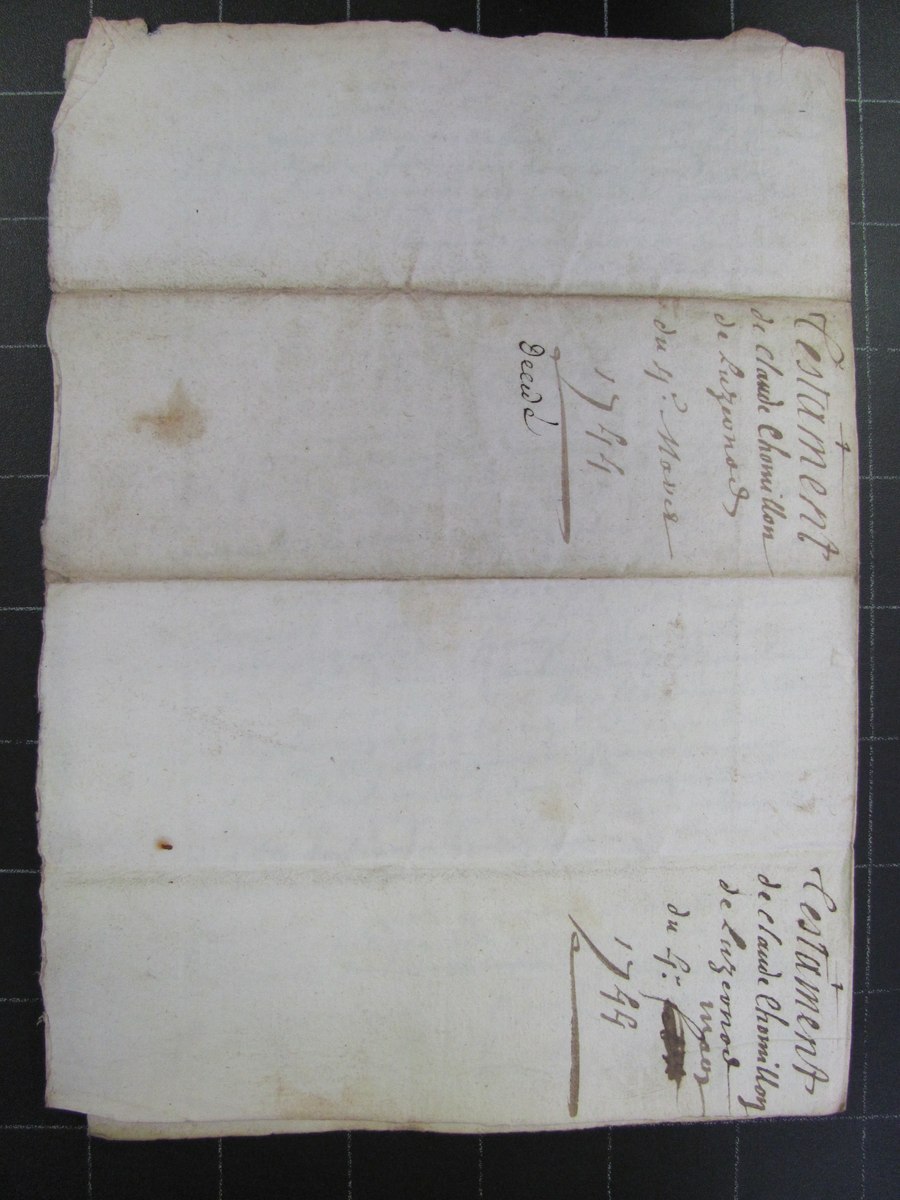 Testament
de Claude Chomillon
de Luzeonod
du 4e
1744
Decedé
Testament
de Claude Chomillon
de Luzeonod
du 4e
1744